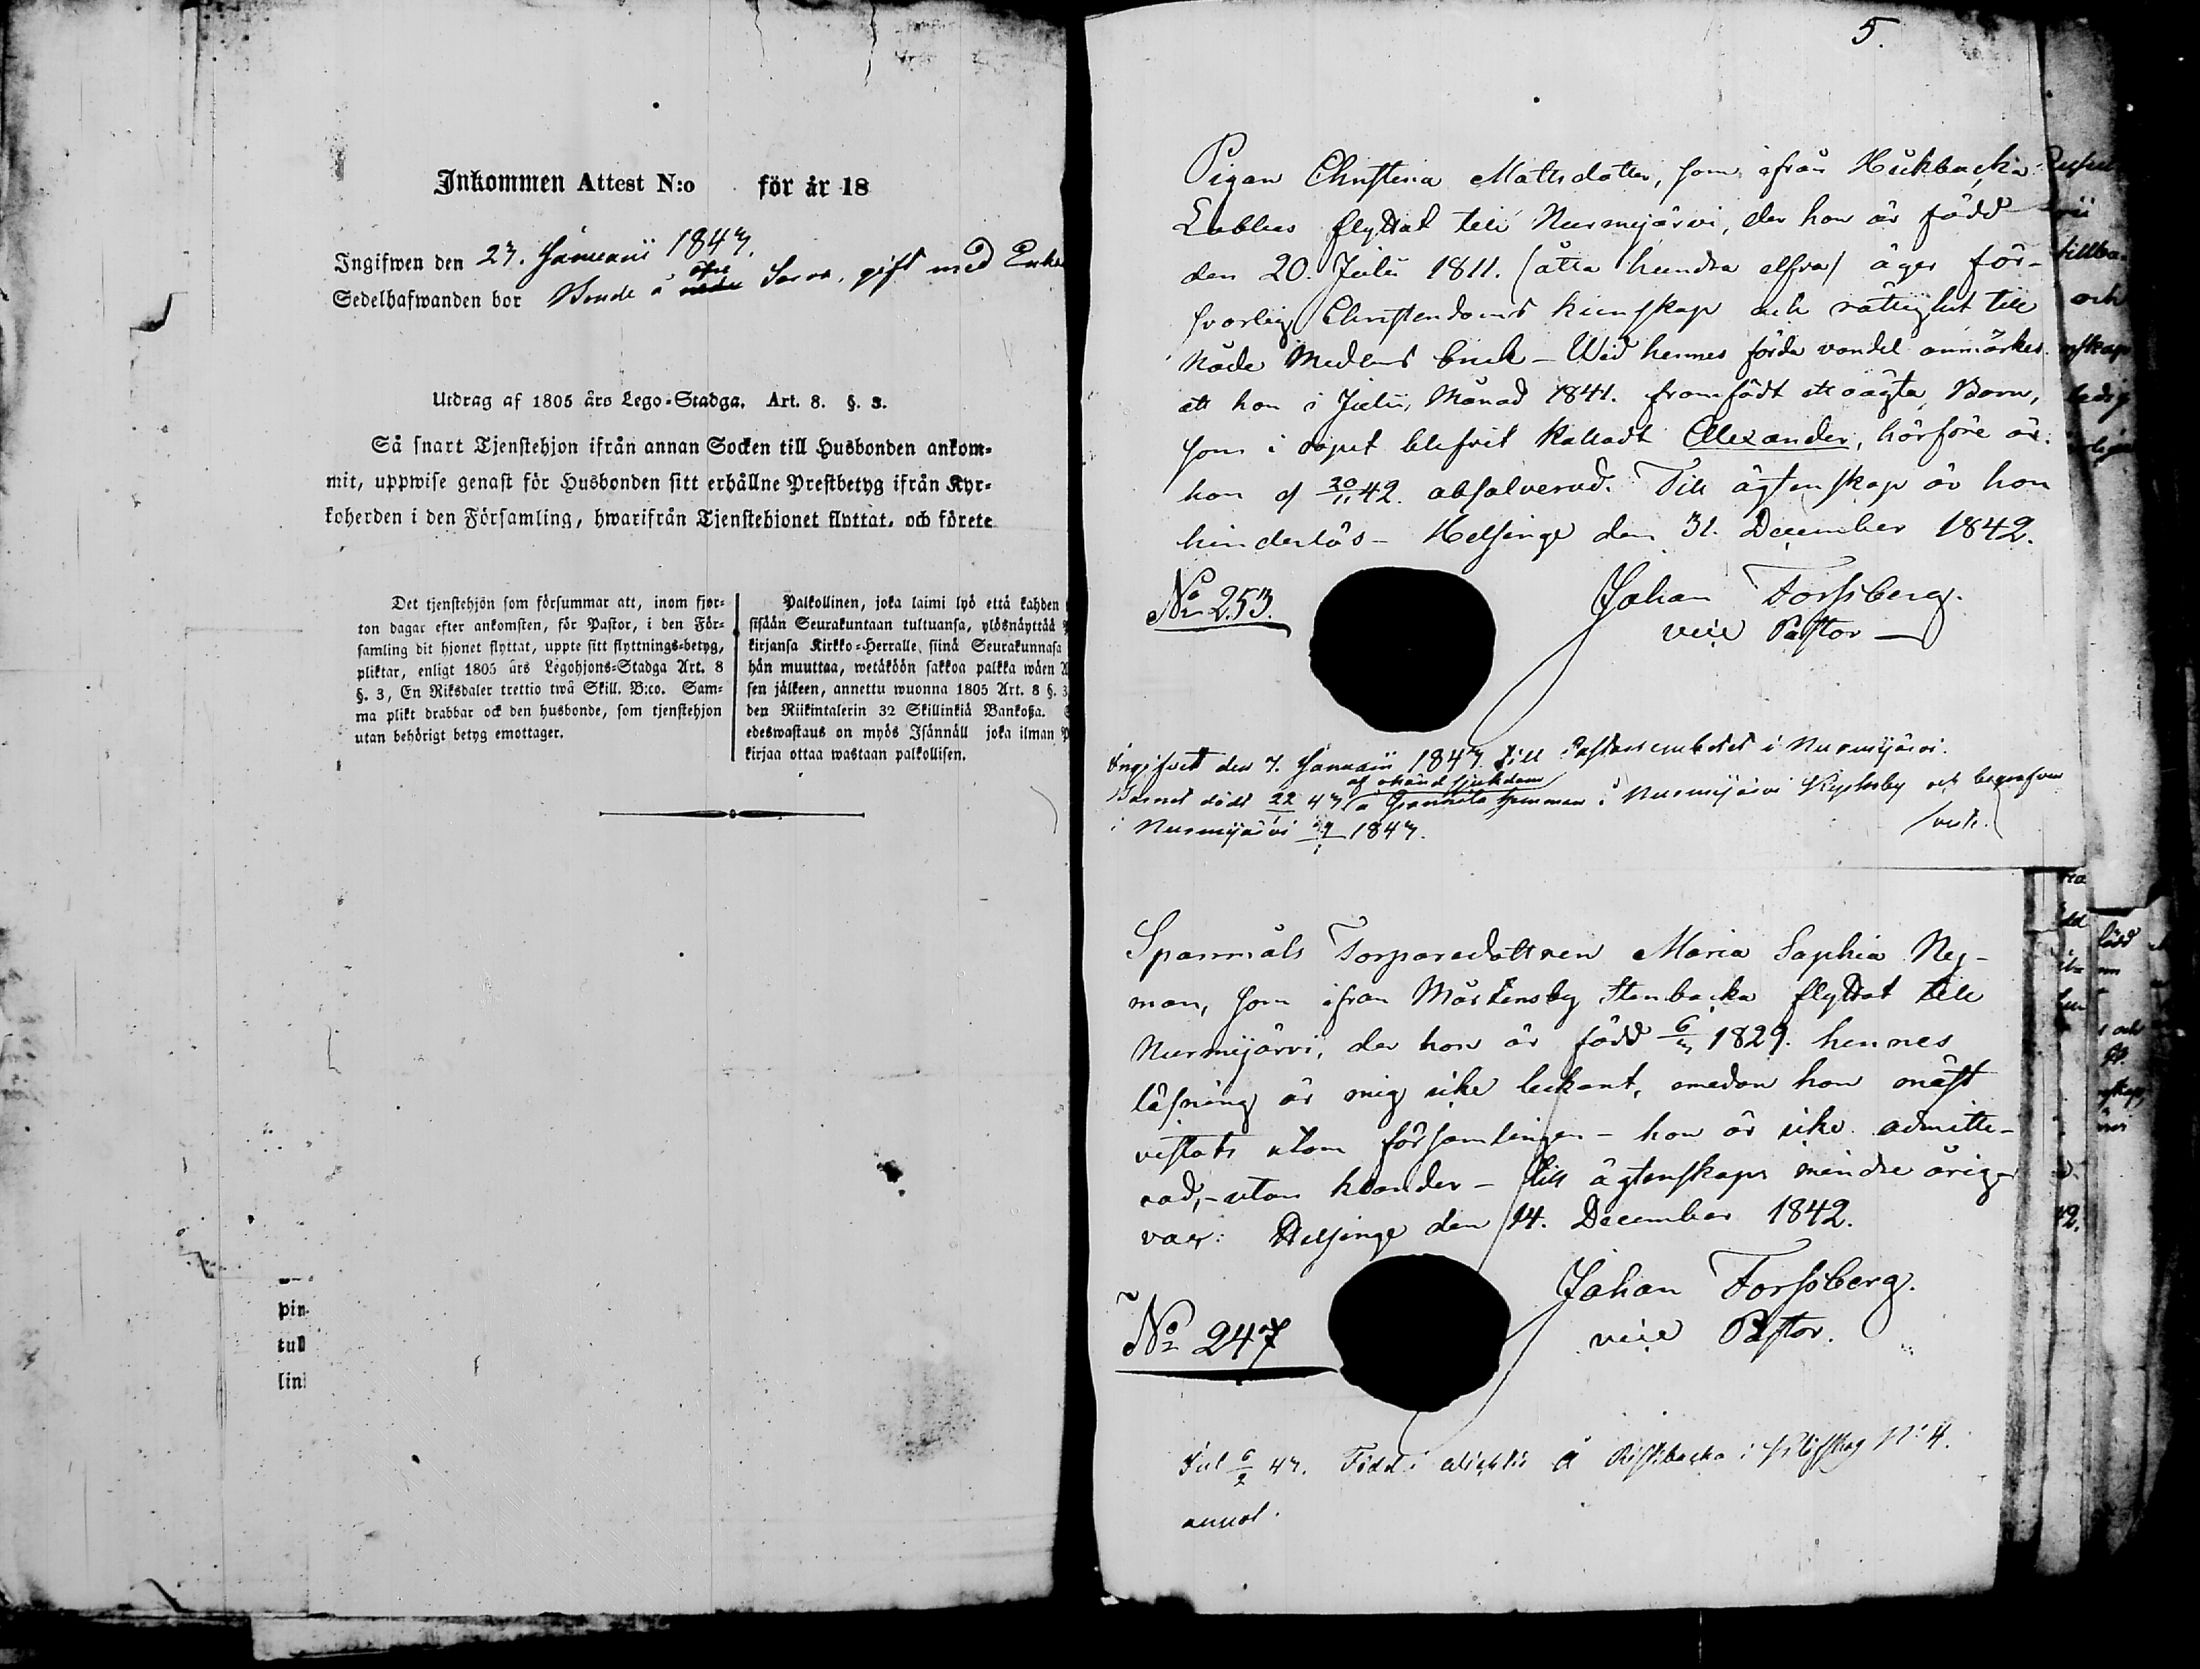 Inkommen Attest N:o för år 18
Ingifwen den 27. Januarii 1843.
öfre
Sedelhafwanden bor Bonde å nedre gift med Enka
Utdrag af 1805 års Lego-Stadga. Art. 8. §. 3.
Så snart Tjenstehjon ifrån annan Socken till Husbonden ankom-
mit, uppwise genast för Husbonden sitt erhållne Prestbetyg ifrån Kyr-
koherden i den Församling, hwarifrån Tjenstehjonet flyttat, och förete
Det tjenstehjon som försummar att, inom fjor-
ton dagar efter ankomsten, för Pastor, i den För-
samling dit hjonet flyttat, uppte sitt flyttnings-betyg,
pliktar, enligt 1805 års Legohjons-Stadga Art. 8
§. 3, En Riksdaler trettio twå Skill. B:co. Sam-
ma plikt drabbar ock den husbonde, som tjenstehjon
utan behörigt betyg emottager.
Palkollinen, joka laimi lyö että kahden
sisään Seurakuntaan tultuansa, ylösnäyttää
kirjansa Kirkko-Herralle, siinä Seurakunnasa
hän muuttaa, wetäköön sakkoa palkka wäen A
sen jälkeen, annettu wuonna 1805 Art. 8 §. 3
den Riikintalerin 32 Skillinkiä Bankoßa.
edeswastaus on myös Isännäll joka ilman P
kirjaa ottaa wastaan palkollisen.
pin
tull
lin
5.
Pigan Christina Mattsdotter, som ifrån Hukbacka
Labbas flyttat till Nurmijärvi, der hon är född
den 20. Julii 1811. (åtta hundra elfva) äger för-
svarlig Christendoms kunskap och rättighet till
Nåde Medlens bruk – Wid hennes förda vandel anmärkes.
att hon i Julii Månad 1841. framfödt ett oägta Barn,
som i dopet blifvit kalladt Alexander, härföre är
hon d 20/11 42. absolverad. Till ägtenskap är hon
hinderlös – Helsinge den 31. December 1842.
No 253.
Johan Forssberg.
vice Pastor
Ingifvit den 7. Januarii 1843 till Pastorsembetet i Nurmijärvi.
af okänd sjukdom
Barnet dödt 22/1 43 å i Nurmijärvi Kyrkoby och begrafven
i Nurmijärvi 1843.
Spannmåls Torparedottren Maria Sophia Ny-
man, som ifrån Mårtensby Stenbacka flyttat till
Nurmijärvi, der hon är född 1829. hennes
läsning är mig icke bekant, emedan hon mäst
vistats utom församlingen – hon är icke admitte-
rad, – utan klander – till ägtenskaps mindre årig
var: Helsinge den 14. December 1842.
No 247
Johan Forssberg.
vice Pastor.
6/2 43. Född i å i No 4.
annot.